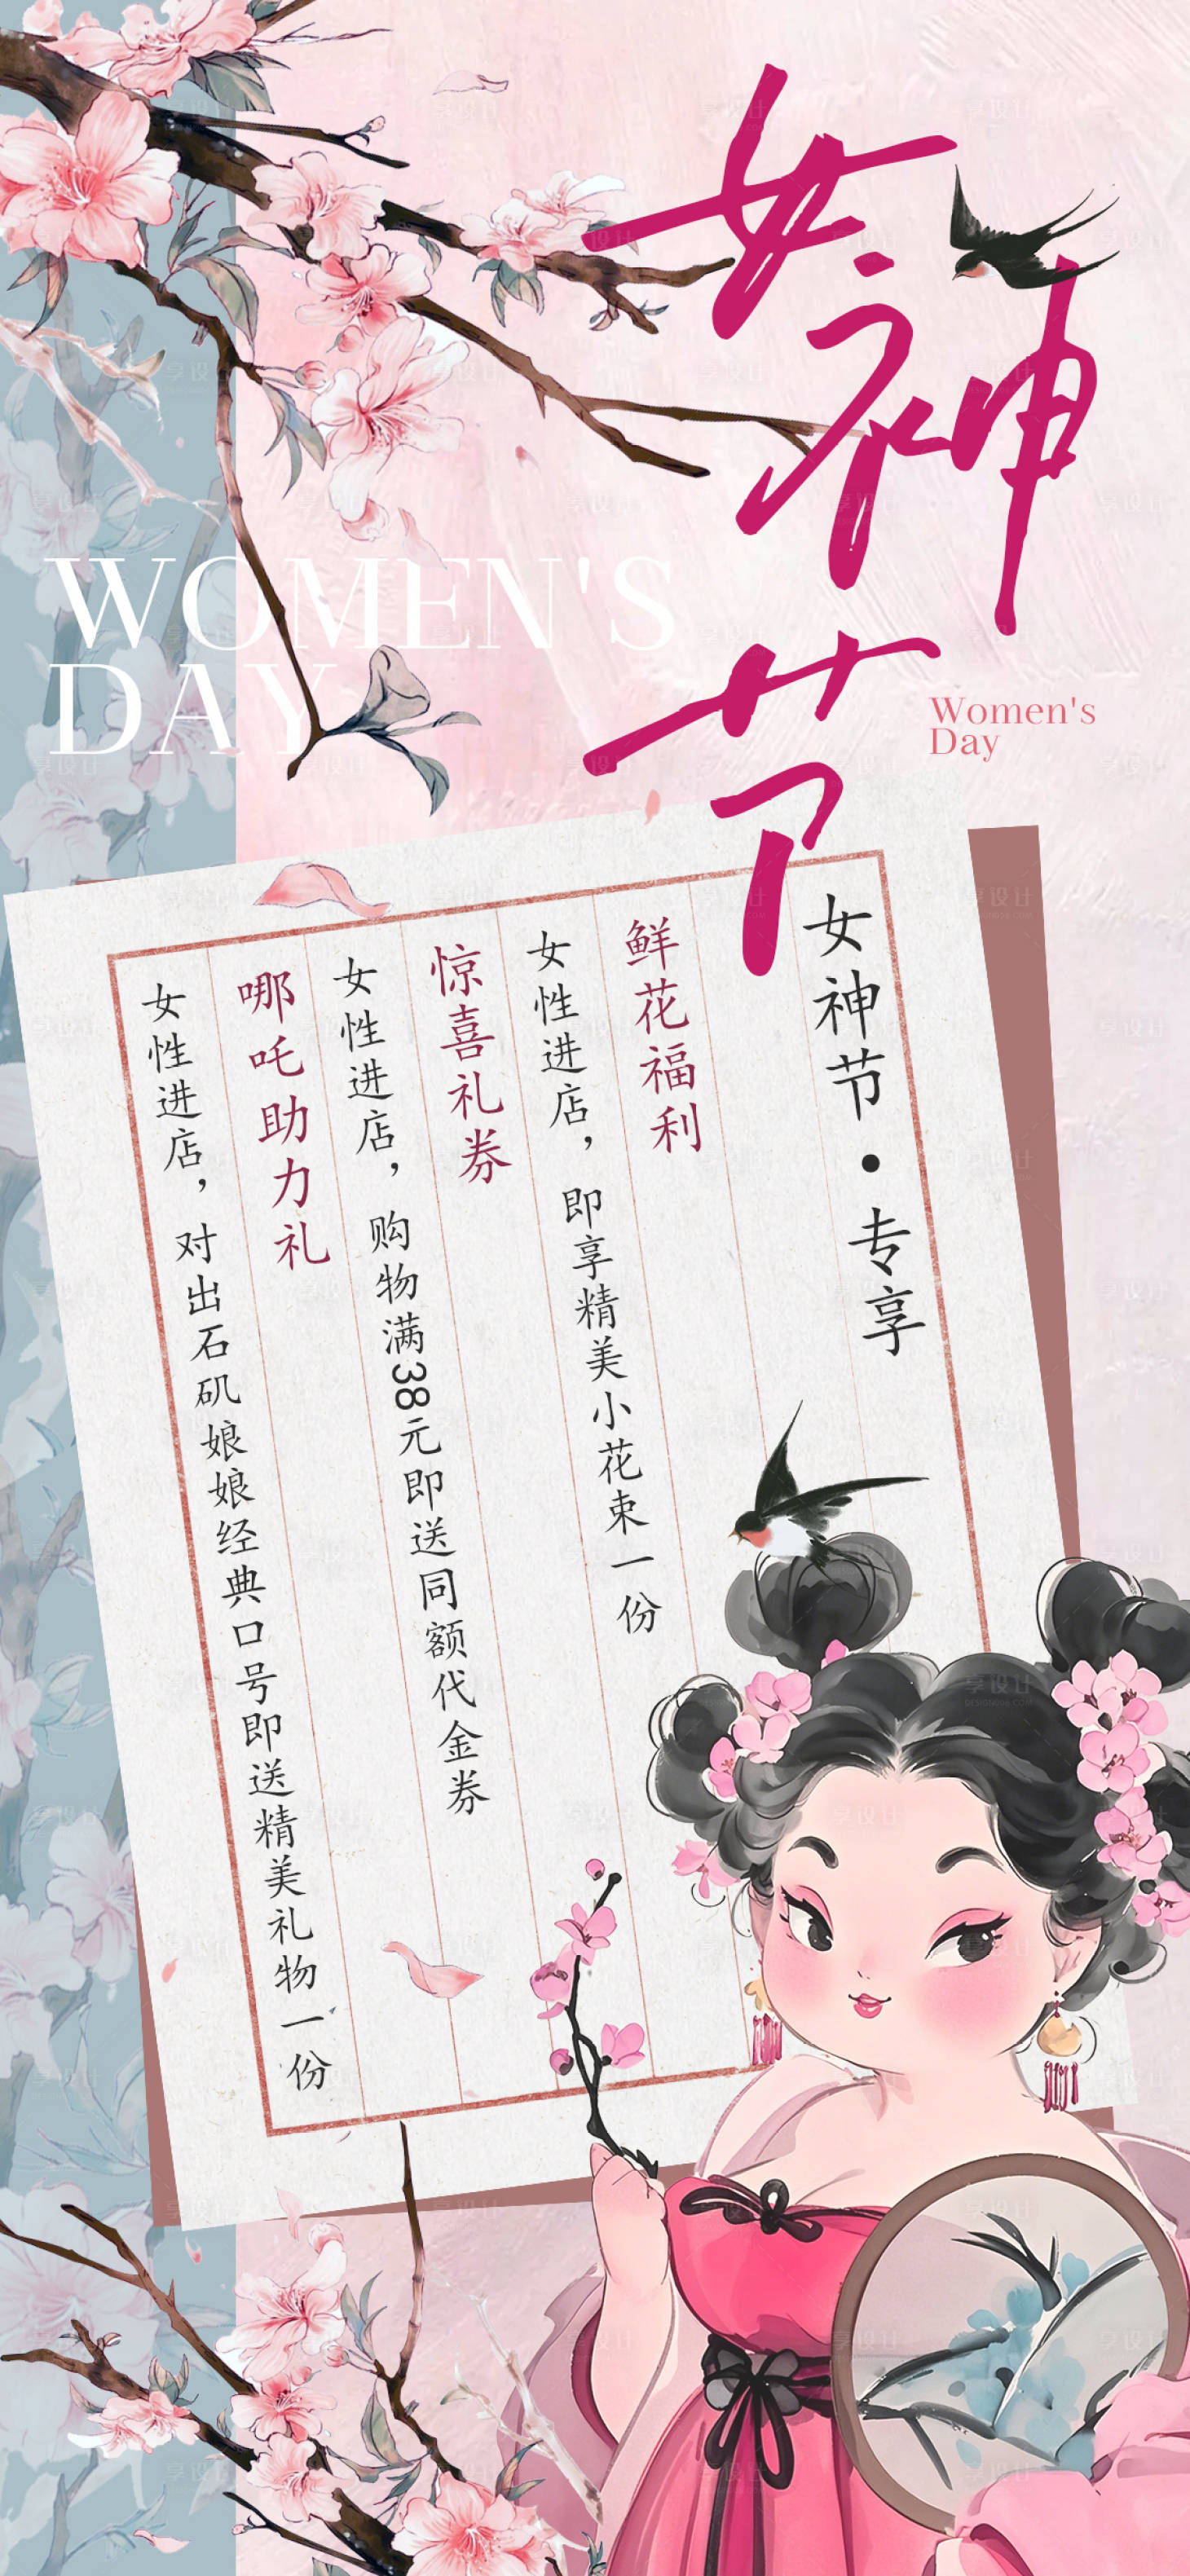 女神节
WOMEN'S
DAY
Women's
Day
女神节·专享
鲜花福利
女性进店，即享精美小花束一份
惊喜礼券
女性进店，购物满38元即送同额代金券
哪吒助力礼
女性进店，对出石矶娘娘经典口号即送精美礼物一份
享设计